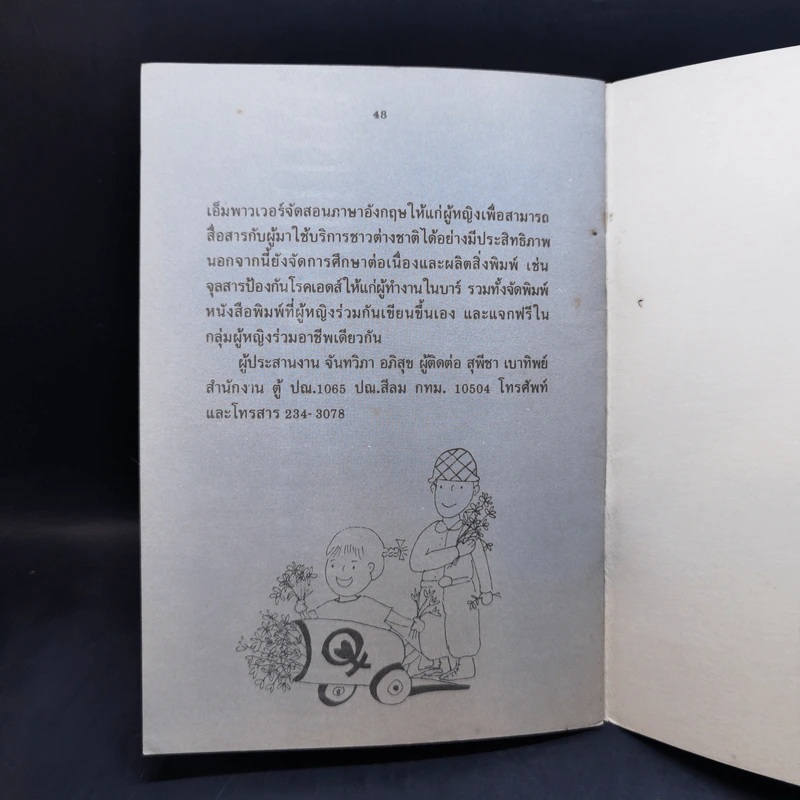 48
เอ็มพาวเวอร์จัดสอนภาษาอังกฤษให้แก่ผู้หญิงเพื่อสามารถ
สื่อสารกับผู้มาใช้บริการชาวต่างชาติได้อย่างมีประสิทธิภาพ
นอกจากนี้ยังจัดการศึกษาต่อเนื่องและผลิตสิ่งพิมพ์ เช่น
จุลสารป้องกันโรคเอดส์ให้แก่ผู้ทำงานในบาร์ รวมทั้งจัดพิมพ์
หนังสือพิมพ์ที่ผู้หญิงร่วมกันเขียนขึ้นเอง และแจกฟรีใน
กลุ่มผู้หญิงร่วมอาชีพเดียวกัน
ผู้ประสานงาน จันทวิภา อภิสุข ผู้ติดต่อ สุพีชา เบาทิพย์
สำนักงาน ตู้ ปณ.1065 ปณ.สีลม กทม. 10504 โทรศัพท์
และโทรสาร 234-3078